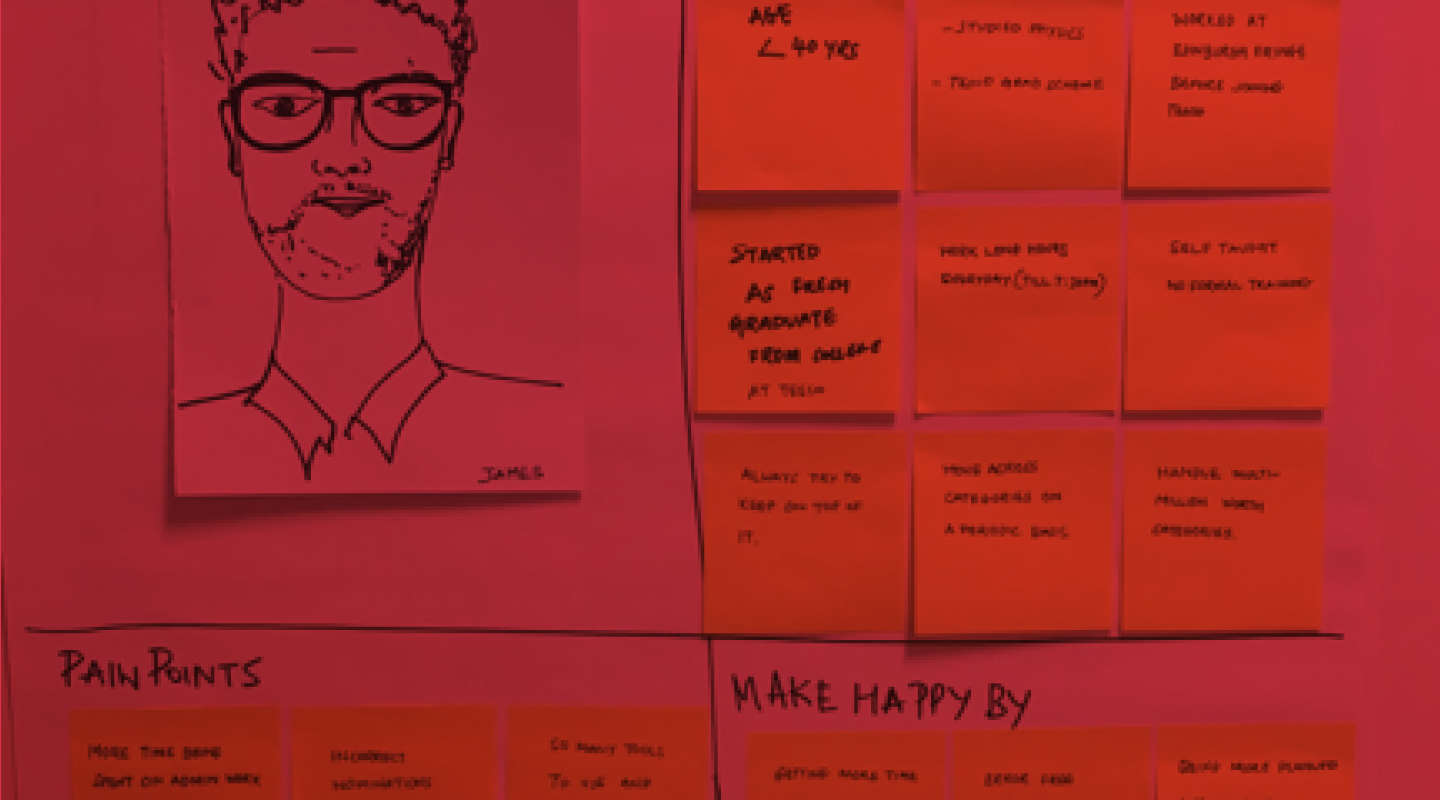 JAMES
AGE
< 40 YRS
- STUDIED PHYSICS
- TESCO GRAD SCHEME
WORKED AT
EDINBURGH FRINGE
BEFORE JOINING
TESCO
STARTED
AS FRESH
GRADUATE
FROM COLLEGE
AT TESCO
WORK LONG HOURS
EVERYDAY (TILL 7:30PM)
SELF TAUGHT
NO FORMAL TRAINING
ALWAYS TRY TO
KEEP ON TOP OF
IT.
MOVE ACROSS
CATEGORIES ON
A PERIODIC BASIS
HANDLE MULTI-
MILLION WORTH
CATEGORIES.
PAIN POINTS
MORE TIME BEING
SPENT ON ADMIN WORK
INCORRECT
NOMINATIONS
SO MANY TOOLS
TO USE AND
MAKE HAPPY BY
GETTING MORE TIME
ERROR FREE
BEING MORE PLANNED